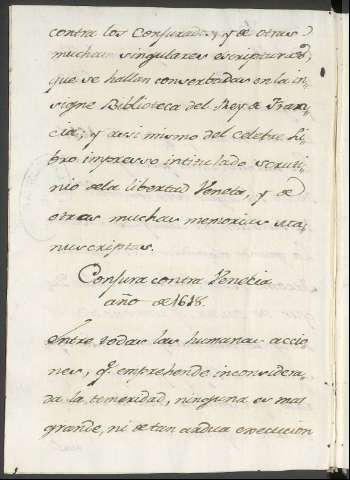 contra los Conjurados, y de otras
muchas singulares escripturas,
que se hallan conserbadas en la in-
signe Biblioteca del Rey de Fran-
cia, y assi mismo del celebre Li-
bro impresso intitulado scruti-
nio de la libertad Veneta, y de
otras muchas memorias ma-
nuscriptas.
Conjura contra Venetia
año de 1618.
Entre todas las humanas accio-
nes, q. emprehende inconsidera-
da la temeridad, ninguna es mas
grande, ni de tan ardua execucion